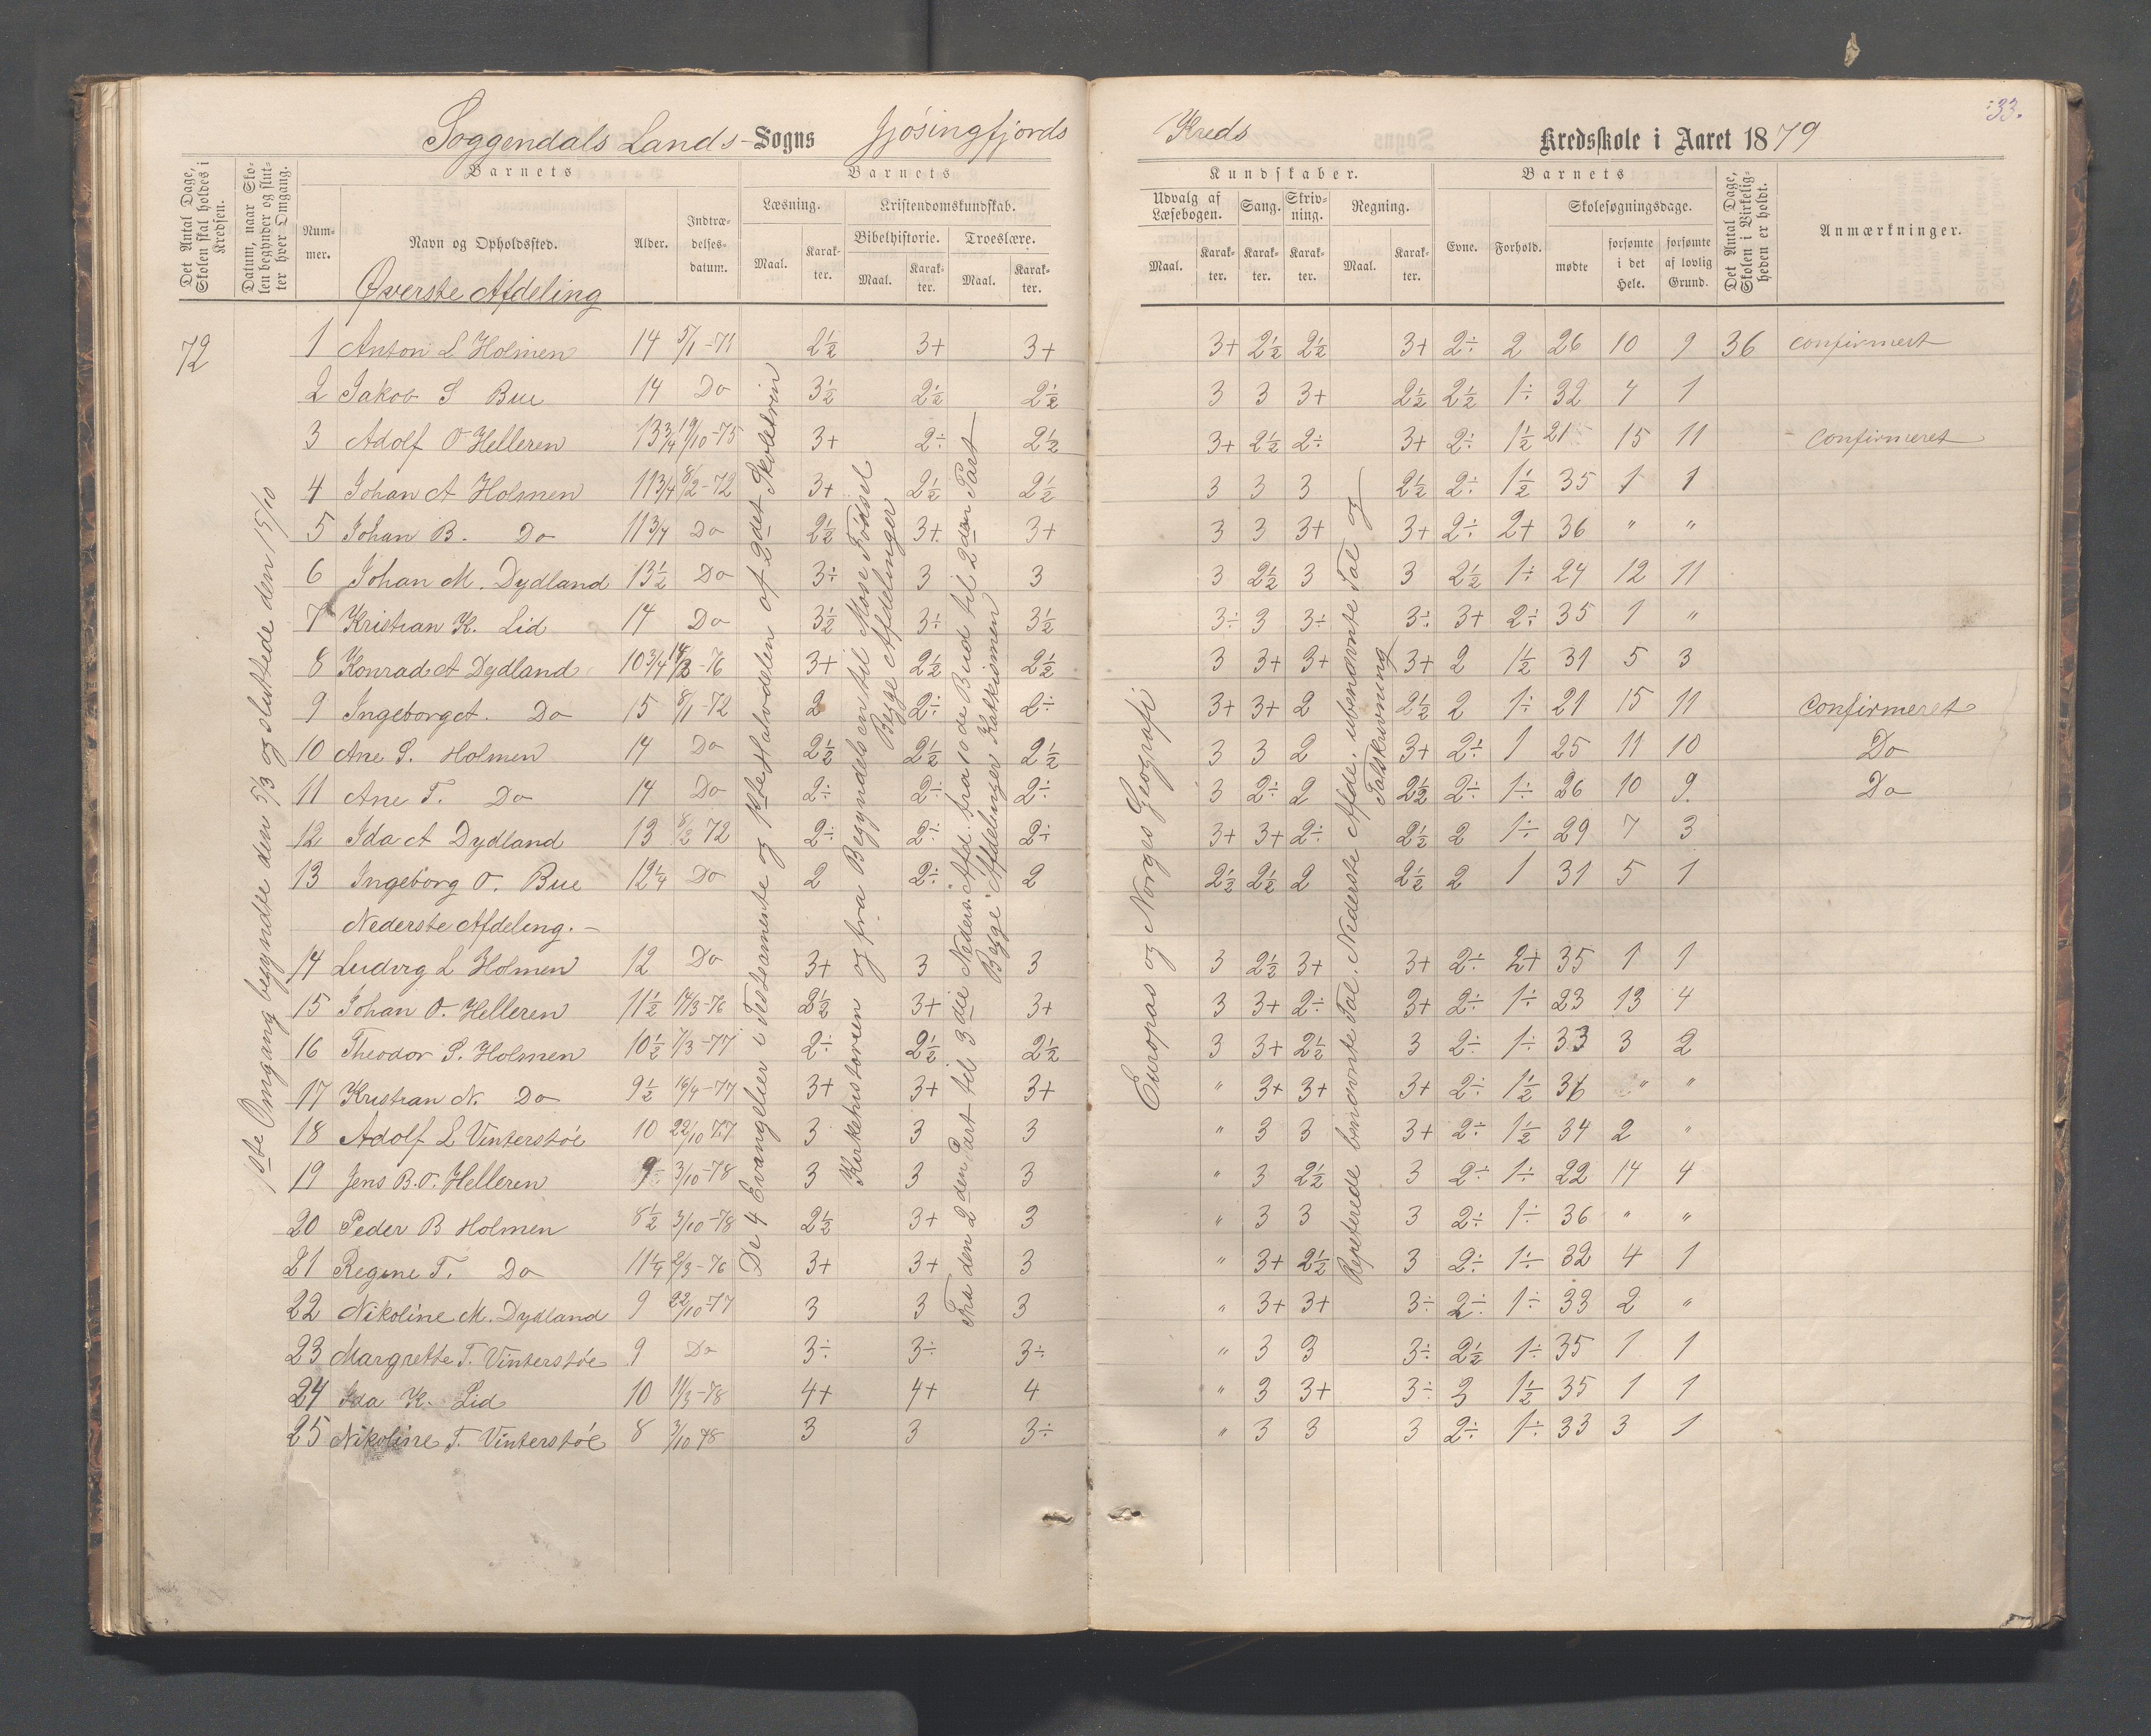 33.
Soggendals Lands-Sogns Jøsingfjords Kreds Kredsskole i Aaret 1879
Det Antal Dage, Skolen skal holdes i Kredsen.
Datum, naar Skolen begynder og slutter hver Omgang.
Barnets
Nummer.
Navn og Opholdssted.
Alder.
Indtrædelsesdatum.
Barnets
Læsning.
Maal.
Karakter.
Kristendomskundskab.
Bibelhistorie.
Maal.
Karakter.
Troeslære.
Maal.
Karakter.
Kundskaber.
Udvalg af Læsebogen.
Maal.
Karakter.
Sang.
Karakter.
Skrivning.
Karakter.
Regning.
Maal.
Karakter.
Barnets
Evne.
Forhold.
Skolesøgningsdage.
mødte
forsømte i det Hele.
forsømte af lovlig Grund.
Det Antal Dage, Skolen i Virkeligheden er holdt.
Anmærkninger.
Øverste Afdeling
72
1ste Omgang begyndte den 5/3 og sluttede den 15/10
1 Anton L Holmen 14 5/1-71 2½ 3+ 3+ 3+ 2½ 2½ 3+ 2÷ 2 26 10 9 36 confirmert
2 Jakob S Bue 14 Do 3½ 2½ 2½ 3 3 3+ 2½ 2½ 1÷ 32 4 1
3 Adolf O Helleren 13¾ 19/10-75 3+ 2÷ 2½ 3+ 2½ 2÷ 3+ 2÷ 1½ 21 15 11 confirmeret
4 Johan A Holmen 11¾ 8/2-72 3+ 2½ 2½ 3 3 3 2½ 2÷ 1½ 35 1 1
5 Johan B. Do 11¾ Do 2½ 3+ 3+ 3 3 3+ 3+ 2÷ 2+ 36 " "
6 Johan M. Dydland 13½ Do 3÷ 3 3 3 2½ 3 3 2½ 1÷ 24 12 11
7 Kristian K. Lid 14 Do 3½ 3÷ 3½ 3÷ 3 3÷ 3÷ 3+ 2÷ 35 1 "
8 Konrad A Dydland 10¾ 14/3-76 3+ 2½ 2½ 3 3+ 3+ 3+ 2 1½ 31 5 3
9 Ingeborg A. Do 15 8/1-72 2 2÷ 2÷ 3+ 3+ 2 2½ 2 1÷ 21 15 11 confirmeret
10 Ane S. Holmen 14 Do 2½ 2½ 2½ 3 3 2 3+ 2÷ 1 25 11 10 Do
11 Ane T. Do 14 Do 2÷ 2÷ 2÷ 3 2÷ 2 2½ 2÷ 1÷ 26 10 9. Do
12 Ida A Dydland 13 8/2 72 2÷ 2÷ 2÷ 3+ 3+ 2÷ 2½ 2 1÷ 29 7 3
13 Ingeborg O. Bue 12¼ Do 2 2÷ 2 2½ 2½ 2 2½ 2 1 31 5 1
Nederste Afdeling.-
14 Ludvig L Holmen 12 Do 3+ 3 3 3 2½ 3+ 3+ 2÷ 2+ 35 1 1
15 Johan O. Helleren 11½ 14/3-76 2½ 3+ 3+ 3 3+ 2÷ 3+ 2÷ 1÷ 23 13 4
16 Theodor S. Holmen 10½ 7/3-77 2÷ 2½ 2½ 3 3+ 2½ 3 2÷ 1÷ 33 3 2
17 Kristian N. Do 9½ 16/4-77 3+ 3+ 3+ " 3+ 3+ 3+ 2÷ 1½ 36 " "
18 Adolf L Vinterstøe 10 22/10 77 3 3 3 " 3 3 3+ 2÷ 1½ 34 2 "
19 Jens B.O. Helleren 9÷ 3/10-78 3 3 3 " 3 2½ 3 2÷ 1÷ 22 14 4
20 Peder B Holmen 8½ 3/10-78 2½ 3+ 3 " 3 3 3 2÷ 1÷ 36 " "
21 Regine T. Do 11¼ 2/3-76 3+ 3+ 3 " 3+ 2½ 3 2÷ 1÷ 32 4 1
22 Nikoline M. Dydland 9 22/10-77 3 3 3 " 3+ 3+ 3÷ 2÷ 1÷ 33 2 "
23 Margrette T. Vinterstøe 9 Do 3÷ 3÷ 3÷ " 3 3 3÷ 2½ 1÷ 35 1 1
24 Ida K. Lid 10 11/3-78 4+ 4+ 4 " 3 3+ 3÷ 3 1½ 35 1 1
25 Nikoline T. Vinterstøe 8 3/10 78 3 3 3÷ " 3 3 3 2÷ 1÷ 33 3 1
De 4 Evangelier i Testamente og 1ste Halvdelen af 2det Skoletrin
Kirkehistorien og fra Begyndelsen til Mose Fødsel
Begge Afdelinger
Fra den 2den Part til 3die Neders. Afd. fra 10de Bud til 2den Part
Begge Afdelinger Katekismen
Europas og Norges Geografi
Repeterede benævnte Tal. Nederste Afde. ubenævnte Tal og
Talskrivning